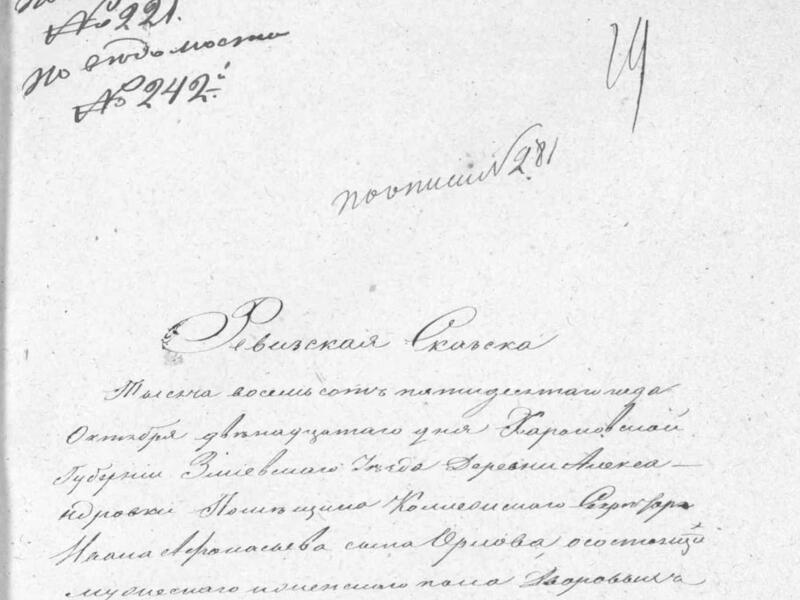 № 221.
По ведомости
№ 242й
24
по описи № 281
Ревизская Сказска
Тысеча восемьсотъ пятидесятаго года
Октября двенадцатаго дня Харьковской
Губернии Змиевскаго Уезда Деревни Алекса-
ндровки Помещика Коллежскаго Секретаря
Ивана Афонасьева сына Орлова о состоящихъ
мужескаго и женскаго пола Дворовыхъ